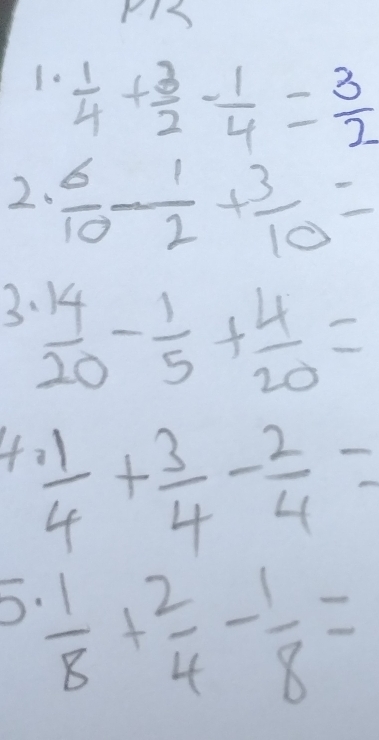 PR
1. 1/4 + 3/2 - 1/4 = 3/2
2. 6/10 - 1/2 + 3/10 =
3. 14/20 - 1/5 + 4/20 =
4. 1/4 + 3/4 - 2/4 =
5. 1/8 + 2/4 - 1/8 =